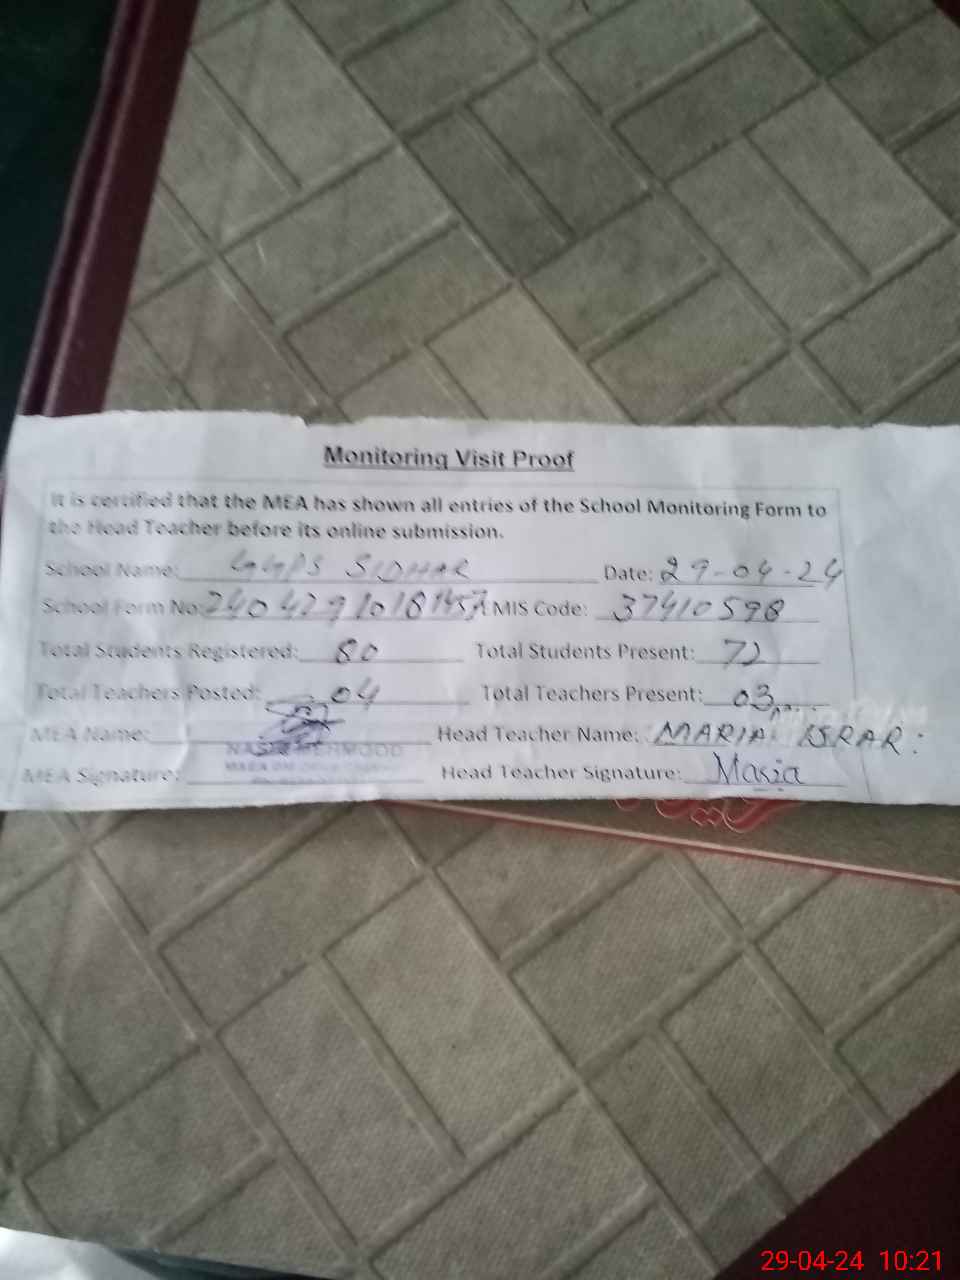 Monitoring Visit Proof
It is certified that the MEA has shown all entries of the School Monitoring Form to
the Head Teacher before its online submission.
School Name: GGPS SIDHAR Date: 29-04-24
School Form No: MIS Code: 37410598
Total Students Registered: 80 Total Students Present: 72
Total Teachers Posted: 04 Total Teachers Present: 03
MEA Name: Head Teacher Name: MARIA ISRAR:
NASIR MEHMOOD
MEA Signature: Head Teacher Signature: Maria
29-04-24 10:21